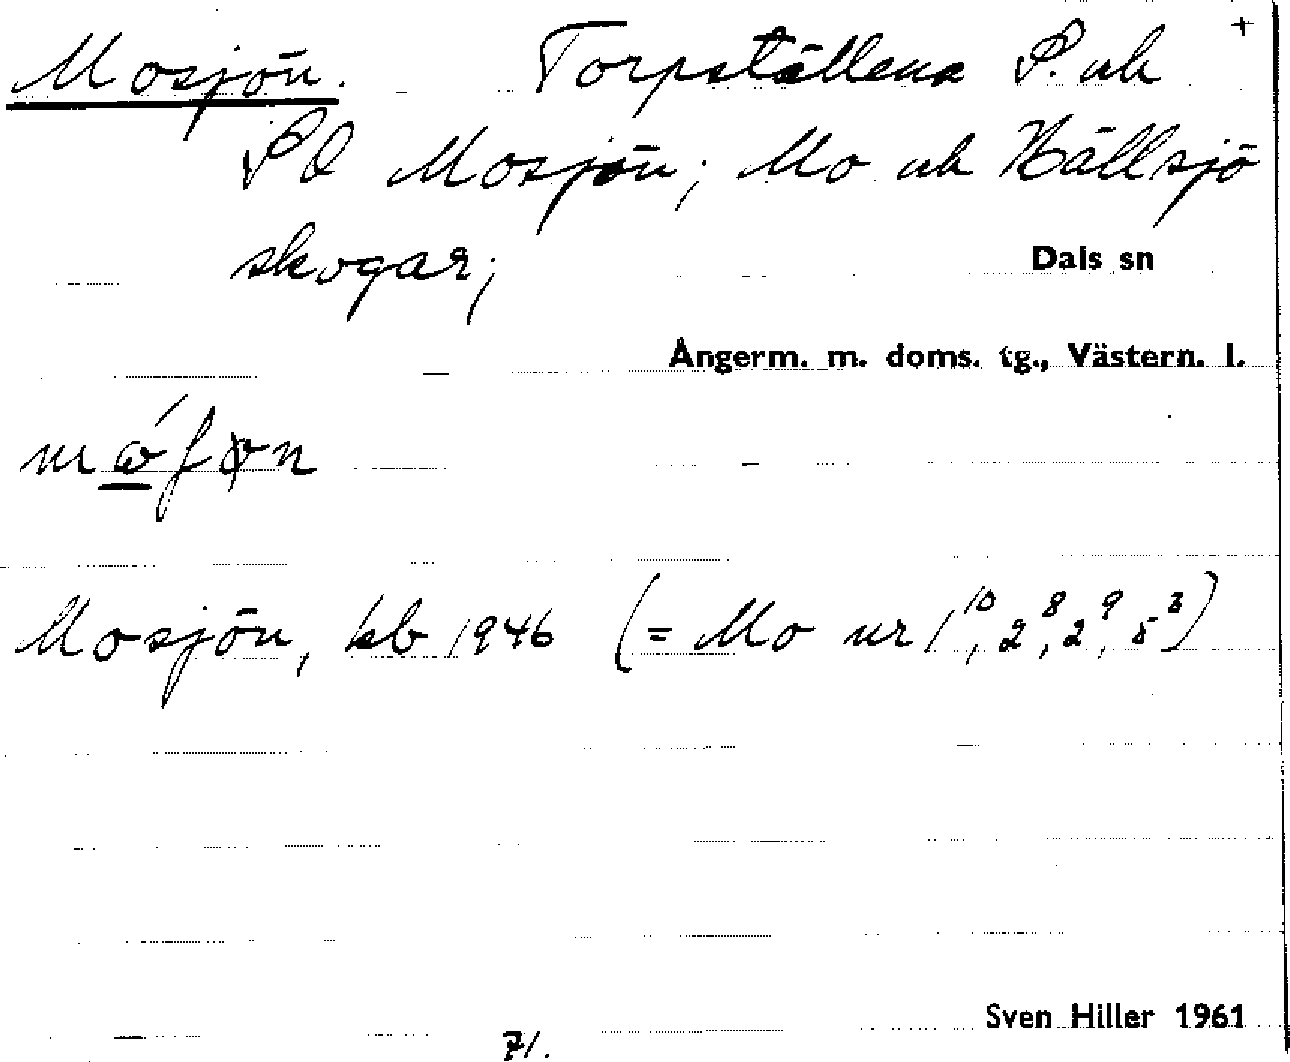 Mosjön. Torpställena S. och +
SO Mosjön; Mo och Hällsjö
skogar;
Dals sn
Ångerm. m. doms. tg., Västern. l.
Mosjön, kb 1946 (= Mo nr 1¹⁰, 2⁸, 2⁹, 5³)
Sven Hiller 1961
71.